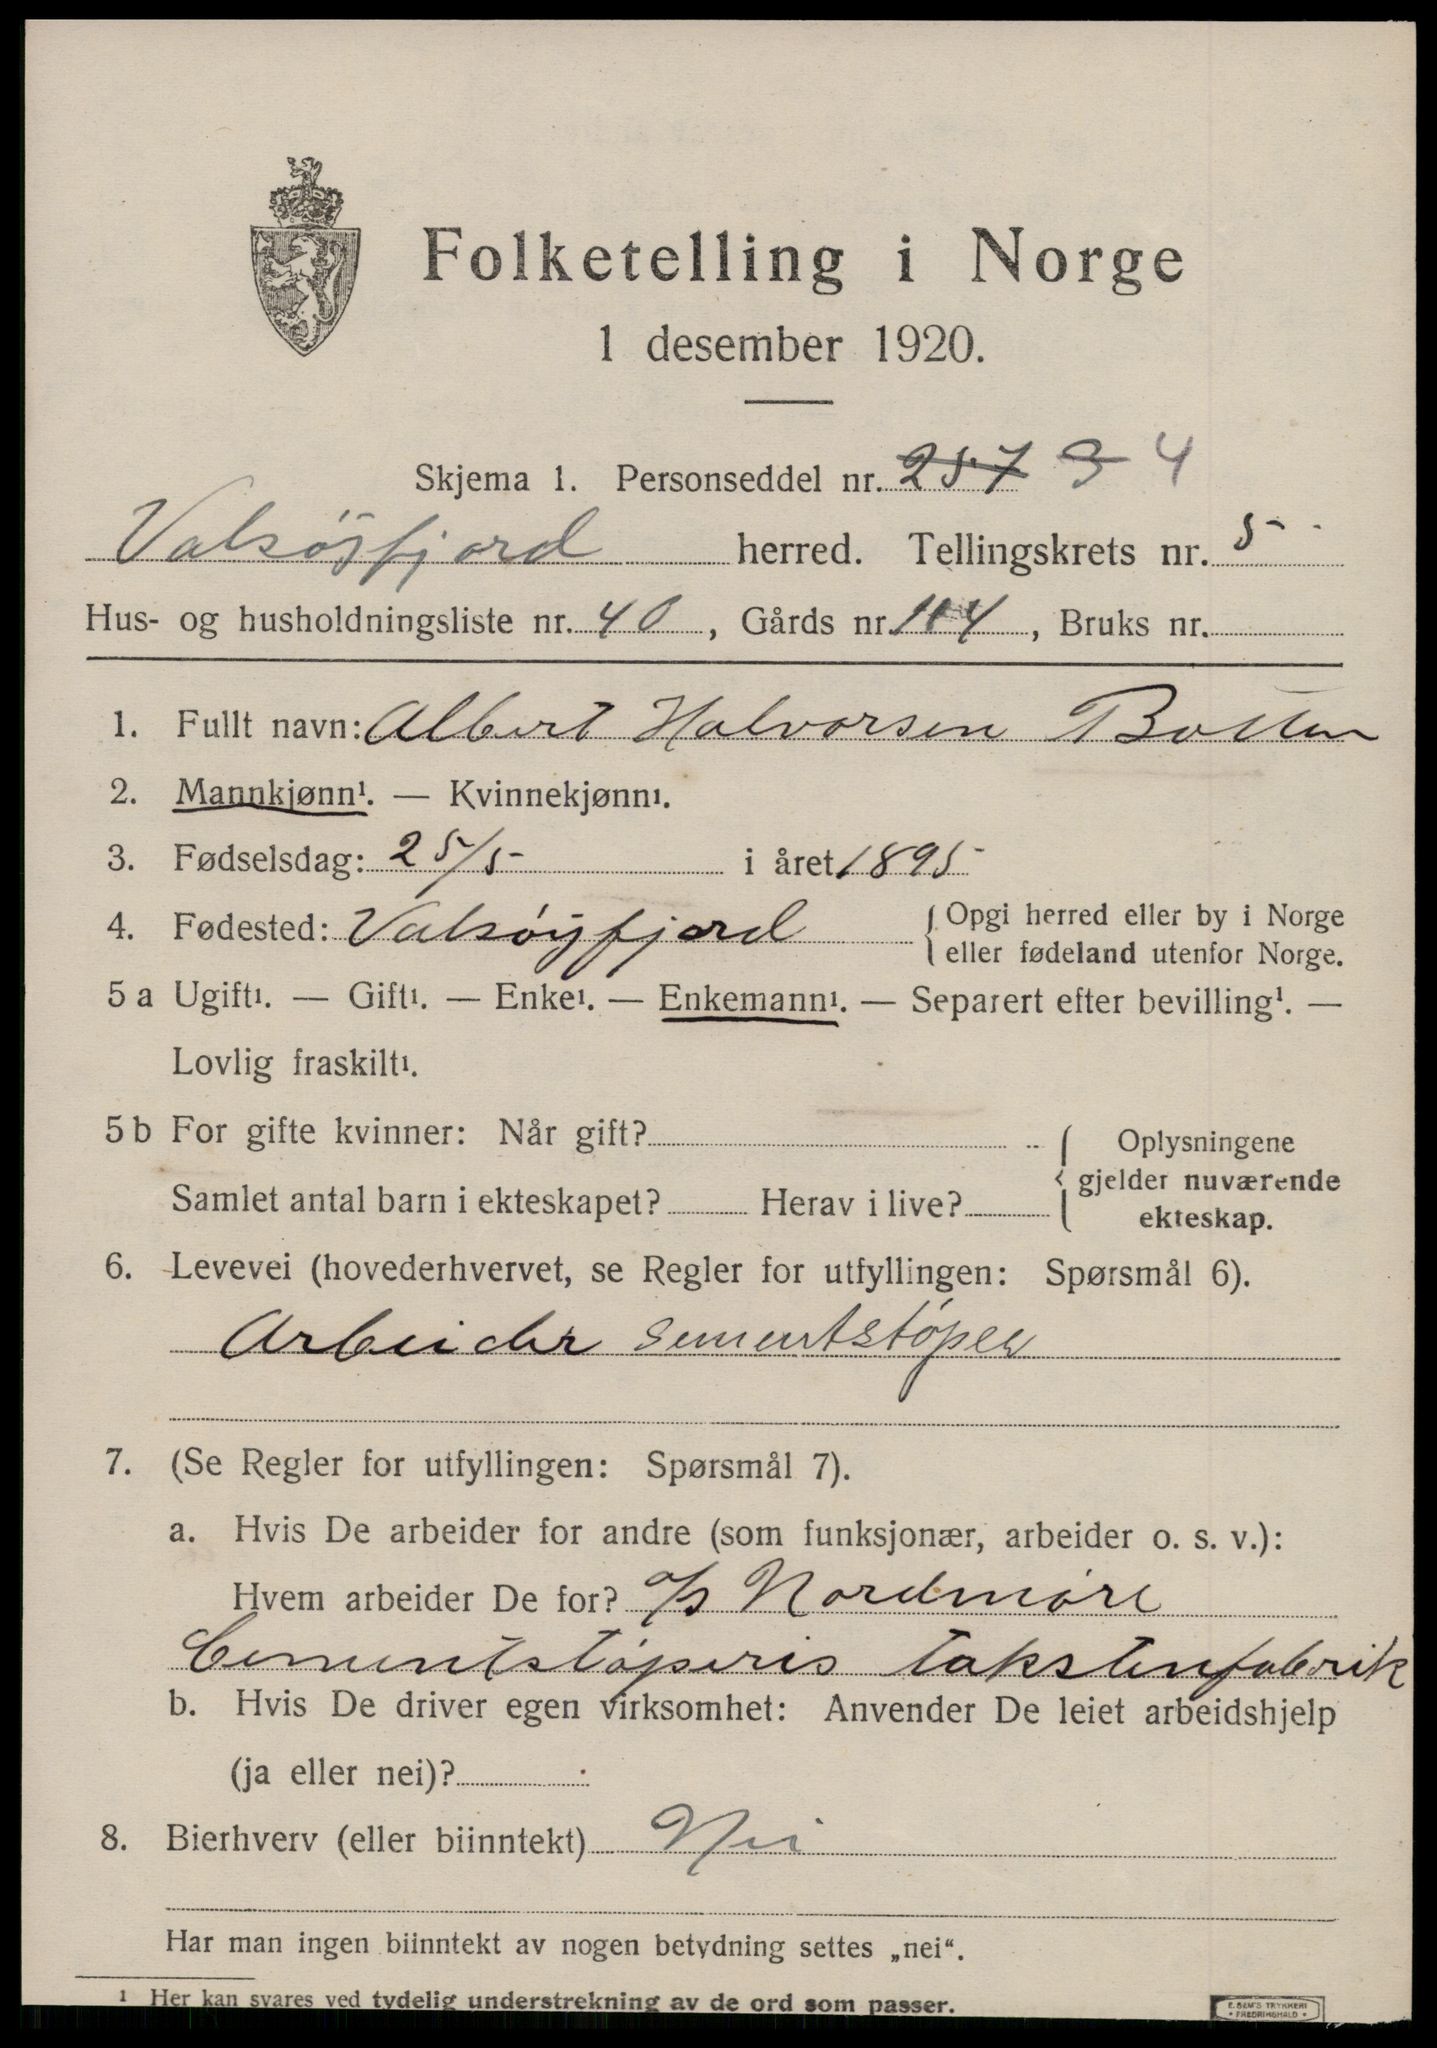 Folketelling i Norge
1 desember 1920.
Skjema 1. Personseddel nr. 257 3 4
Valsøyfjord herred. Tellingskrets nr. 5
Hus- og husholdningsliste nr. 40, Gårds nr. 114, Bruks nr.
1. Fullt navn: Albert Halvorsen Botten
2. Mannkjønn¹. — Kvinnekjønn¹.
3. Fødselsdag: 25/5 i året 1895
4. Fødested: Valsøyfjord { Opgi herred eller by i Norge
eller fødeland utenfor Norge.
5 a Ugift¹. — Gift¹. — Enke¹. — Enkemann¹. — Separert efter bevilling¹. —
Lovlig fraskilt¹.
5 b For gifte kvinner: Når gift? { Oplysningene
gjelder nuværende
Samlet antal barn i ekteskapet? Herav i live?
ekteskap.
6. Levevei (hovederhvervet, se Regler for utfyllingen: Spørsmål 6).
Arbeider sementstøper
7. (Se Regler for utfyllingen: Spørsmål 7).
a. Hvis De arbeider for andre (som funksjonær, arbeider o. s. v.):
Hvem arbeider De for? a/s Nordmøre
Cementstøperis takstenfabrik
b. Hvis De driver egen virksomhet: Anvender De leiet arbeidshjelp
(ja eller nei)?
8. Bierhverv (eller biinntekt) Nei
Har man ingen biinntekt av nogen betydning settes „nei“.
¹ Her kan svares ved tydelig understrekning av de ord som passer.
E. SEM'S TRYKKERI
• FREDRIKSHALD •